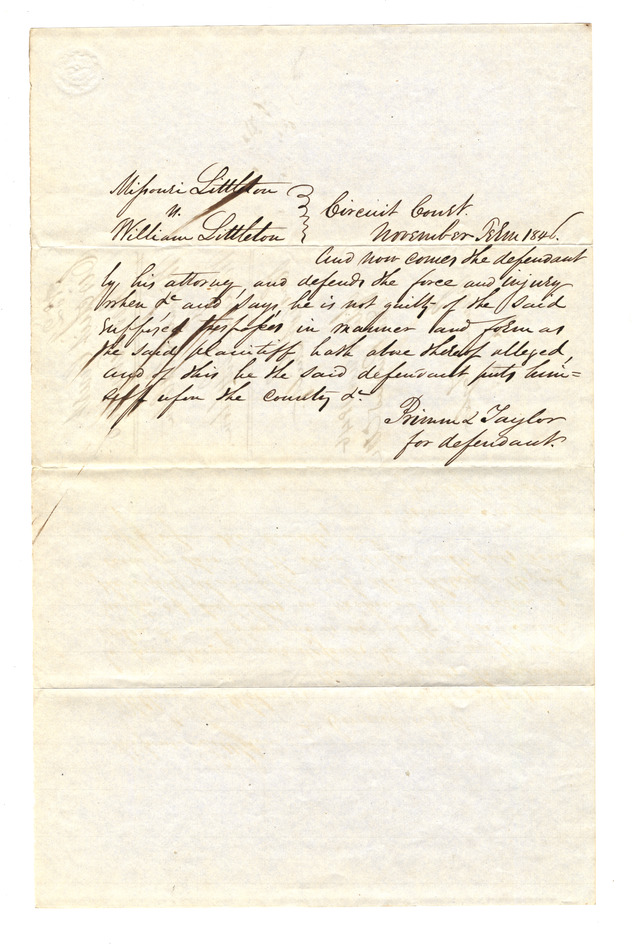 Missouri Littleton
v.
William Littleton
Circuit Court.
November Term 1846.
And now comes the defendant
by his attorney, and defends the force and injury
when &c and says, he is not guilty of the said
supposed trespasses in manner and form as
the said plaintiff hath above thereof alleged,
and of this he the said defendant puts him=
self upon the country &c.
Primm & Taylor
for defendant.